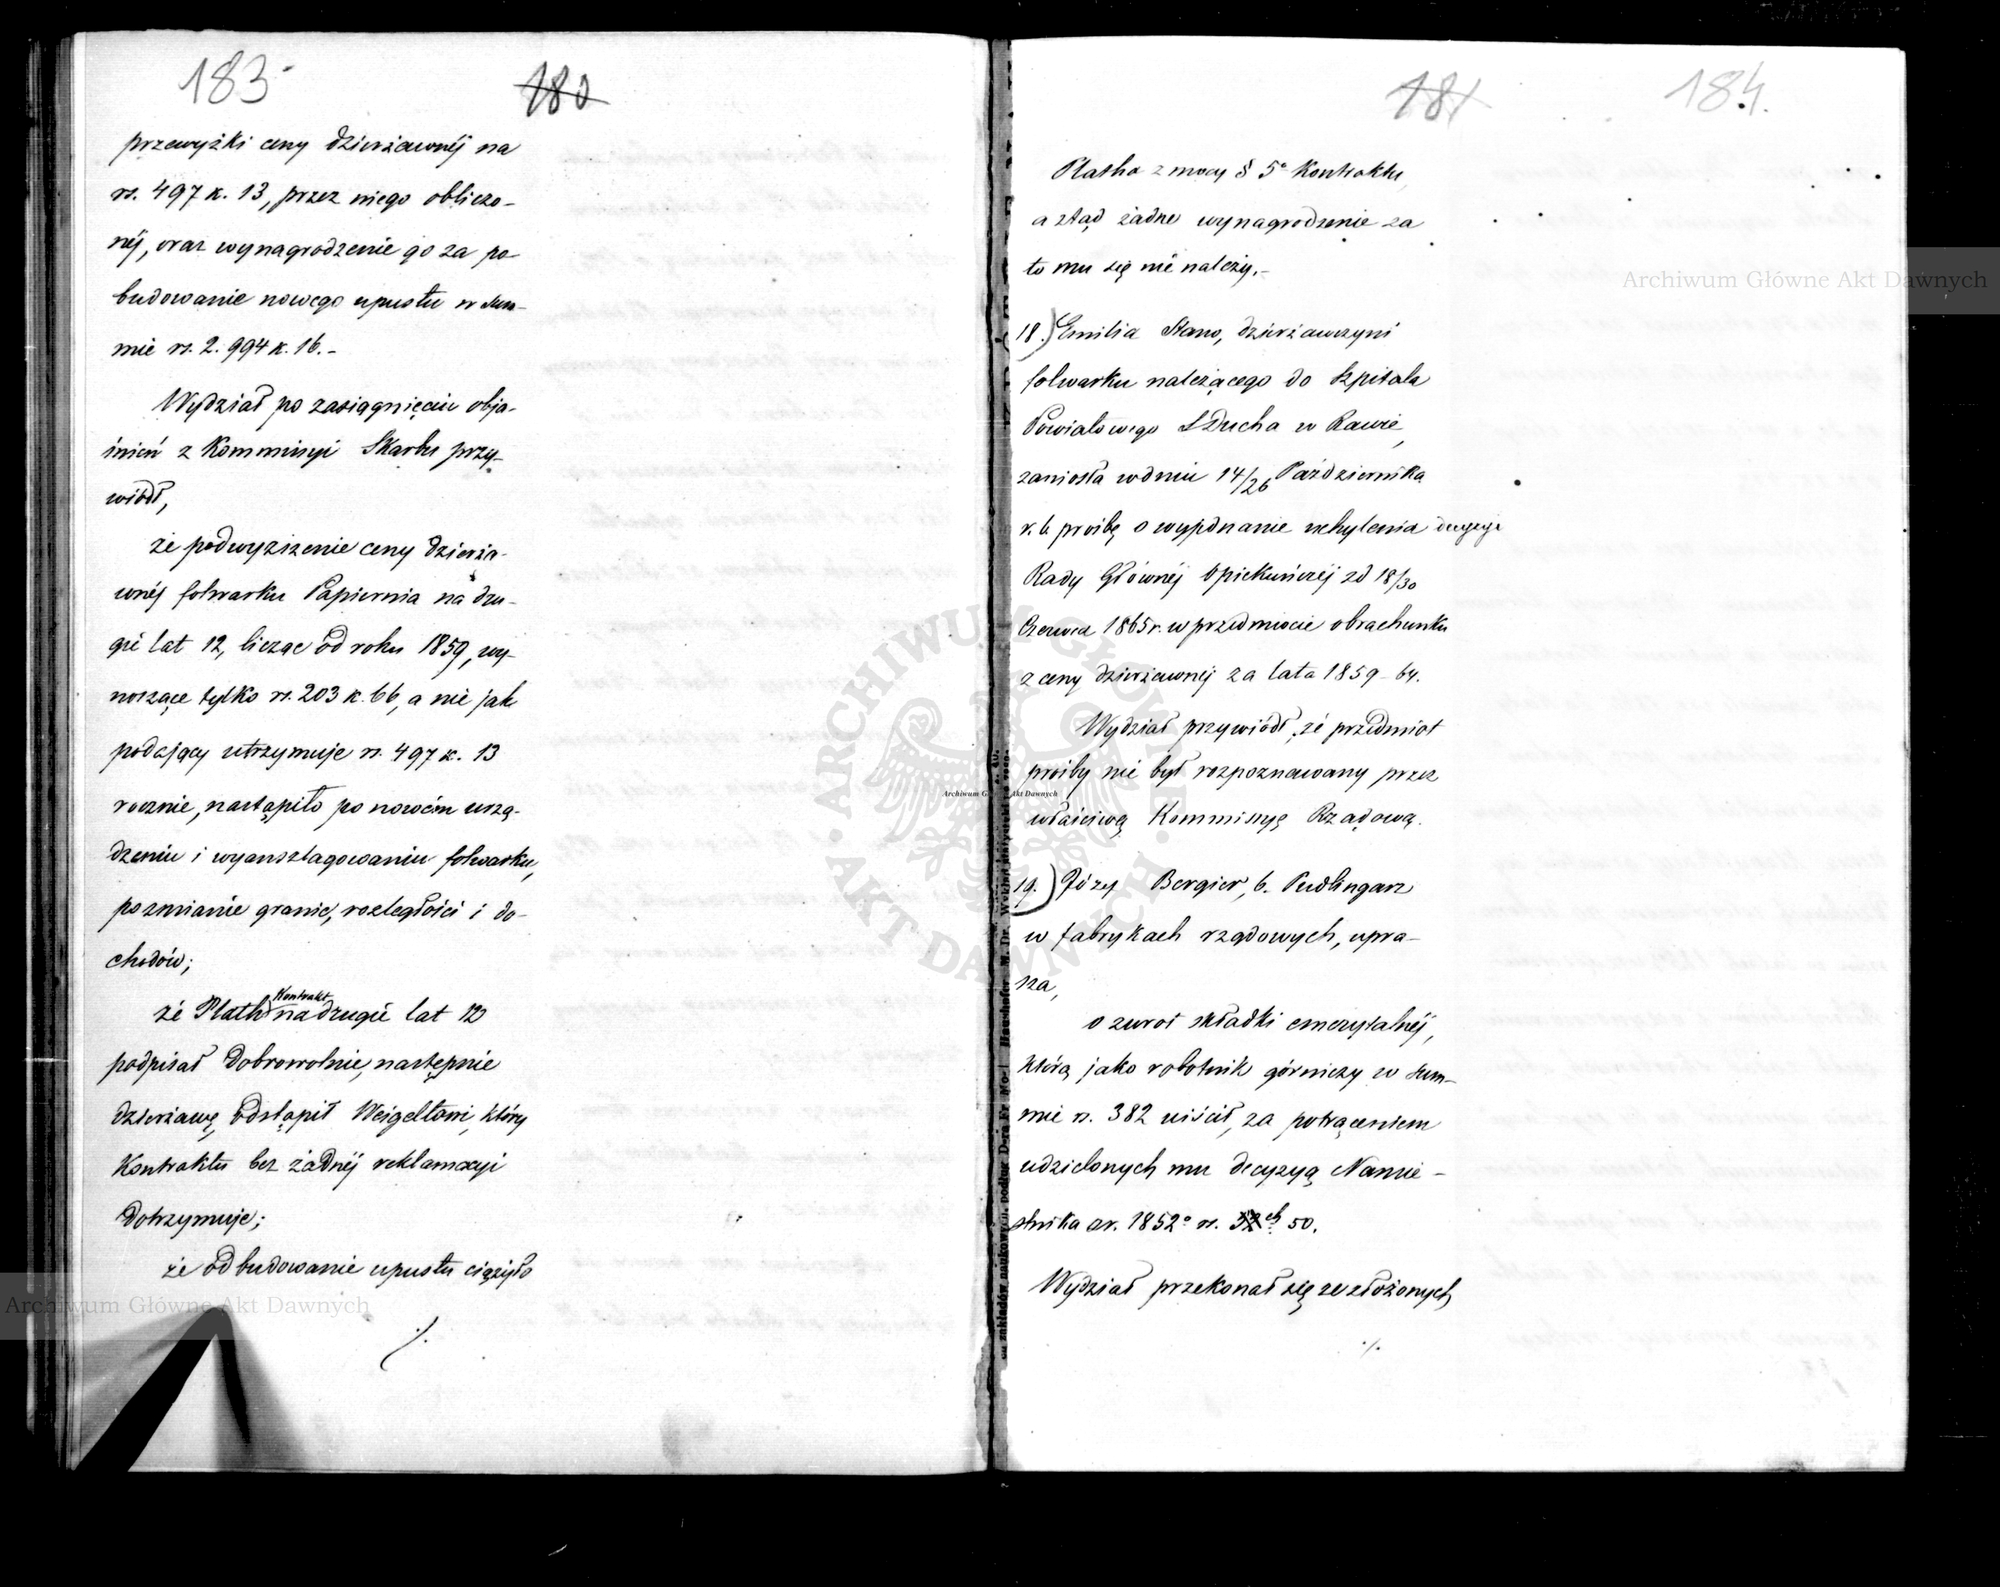 183
180
przewyżki ceny dzierżawnéj na
rs. 497 k. 13, przez niego obliczo-
néj, oraz wynagrodzenie go za po-
budowanie nowego upustu w sum-
mie rs. 2.994 k. 16.-
Wydział po zasiągnięciu obja-
śnień z Kommissyi Skarbu przy-
wiódł,
że podwyższenie ceny dzierża-
wnéj folwarku Papiernia na dru-
gie lat 12, licząc od roku 1859, wy-
noszące tylko rs. 203 k. 66, a nie jak
podający utrzymuje rs. 497 k. 13
rocznie, nastąpiło po nowém urzą-
dzeniu i wyansztagowaniu folwarku,
po zmianie granic, rozległości i do-
chodów;
że Plath Kontrakt na drugie lat 12
podpisał dobrowolnie, następnie
dzierżawę odstąpił Weigeltowi, który
Kontraktu bez żadnéj reklamacyi
dotrzymuje;
że odbudowanie upustu ciążyło
./.
181
184.
Platha z mocy § 5° Kontraktu,
a ztąd żadne wynagrodzenie za
to mu się nie należy.-
18.) Emilia Stano, dzierżawczyni
folwarku należącego do Szpitala
Powiatowego S Ducha w Rawie,
zaniosła w dniu 14/26 Października
r. b. prośbę o wyjednanie uchylenia decyzyi
Rady Głównéj Opiekuńczéj z d 18/30
Czerwca 1865 r. w przedmiocie obrachunku
z ceny dzierżawnéj za lata 1859-64.
Wydział przywiódł, że przedmiot
prośby nie był rozpoznawany przez
właściwą Kommissyę Rządową.
19.) Józy Bergier, b. Pudlingarz
w fabrykach rządowych, upra-
sza,
o zwrot składki emerytalnéj,
którą jako robotnik górniczy w sum-
mie rs. 382 uiścił, za potrąceniem
udzielonych mu decyzyą Namie-
stnika z r. 1852° rs. 50.
Wydział przekonał się ze złożonych
./.
Archiwum Główne Akt Dawnych
Archiwum Główne Akt Dawnych
Archiwum Główne Akt Dawnych
ARCHIWUM GŁÓWNE AKT DAWNYCH